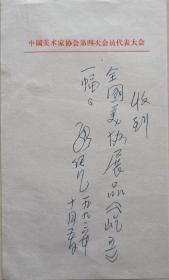 中国美术家协会第四次会员代表大会
收到
全国美协展品《屹立》
一幅。
一九八六年
十月五日